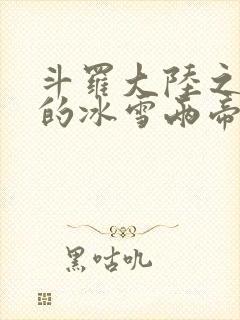 斗羅大陸之
的冰雪兩帝
黑咕吼